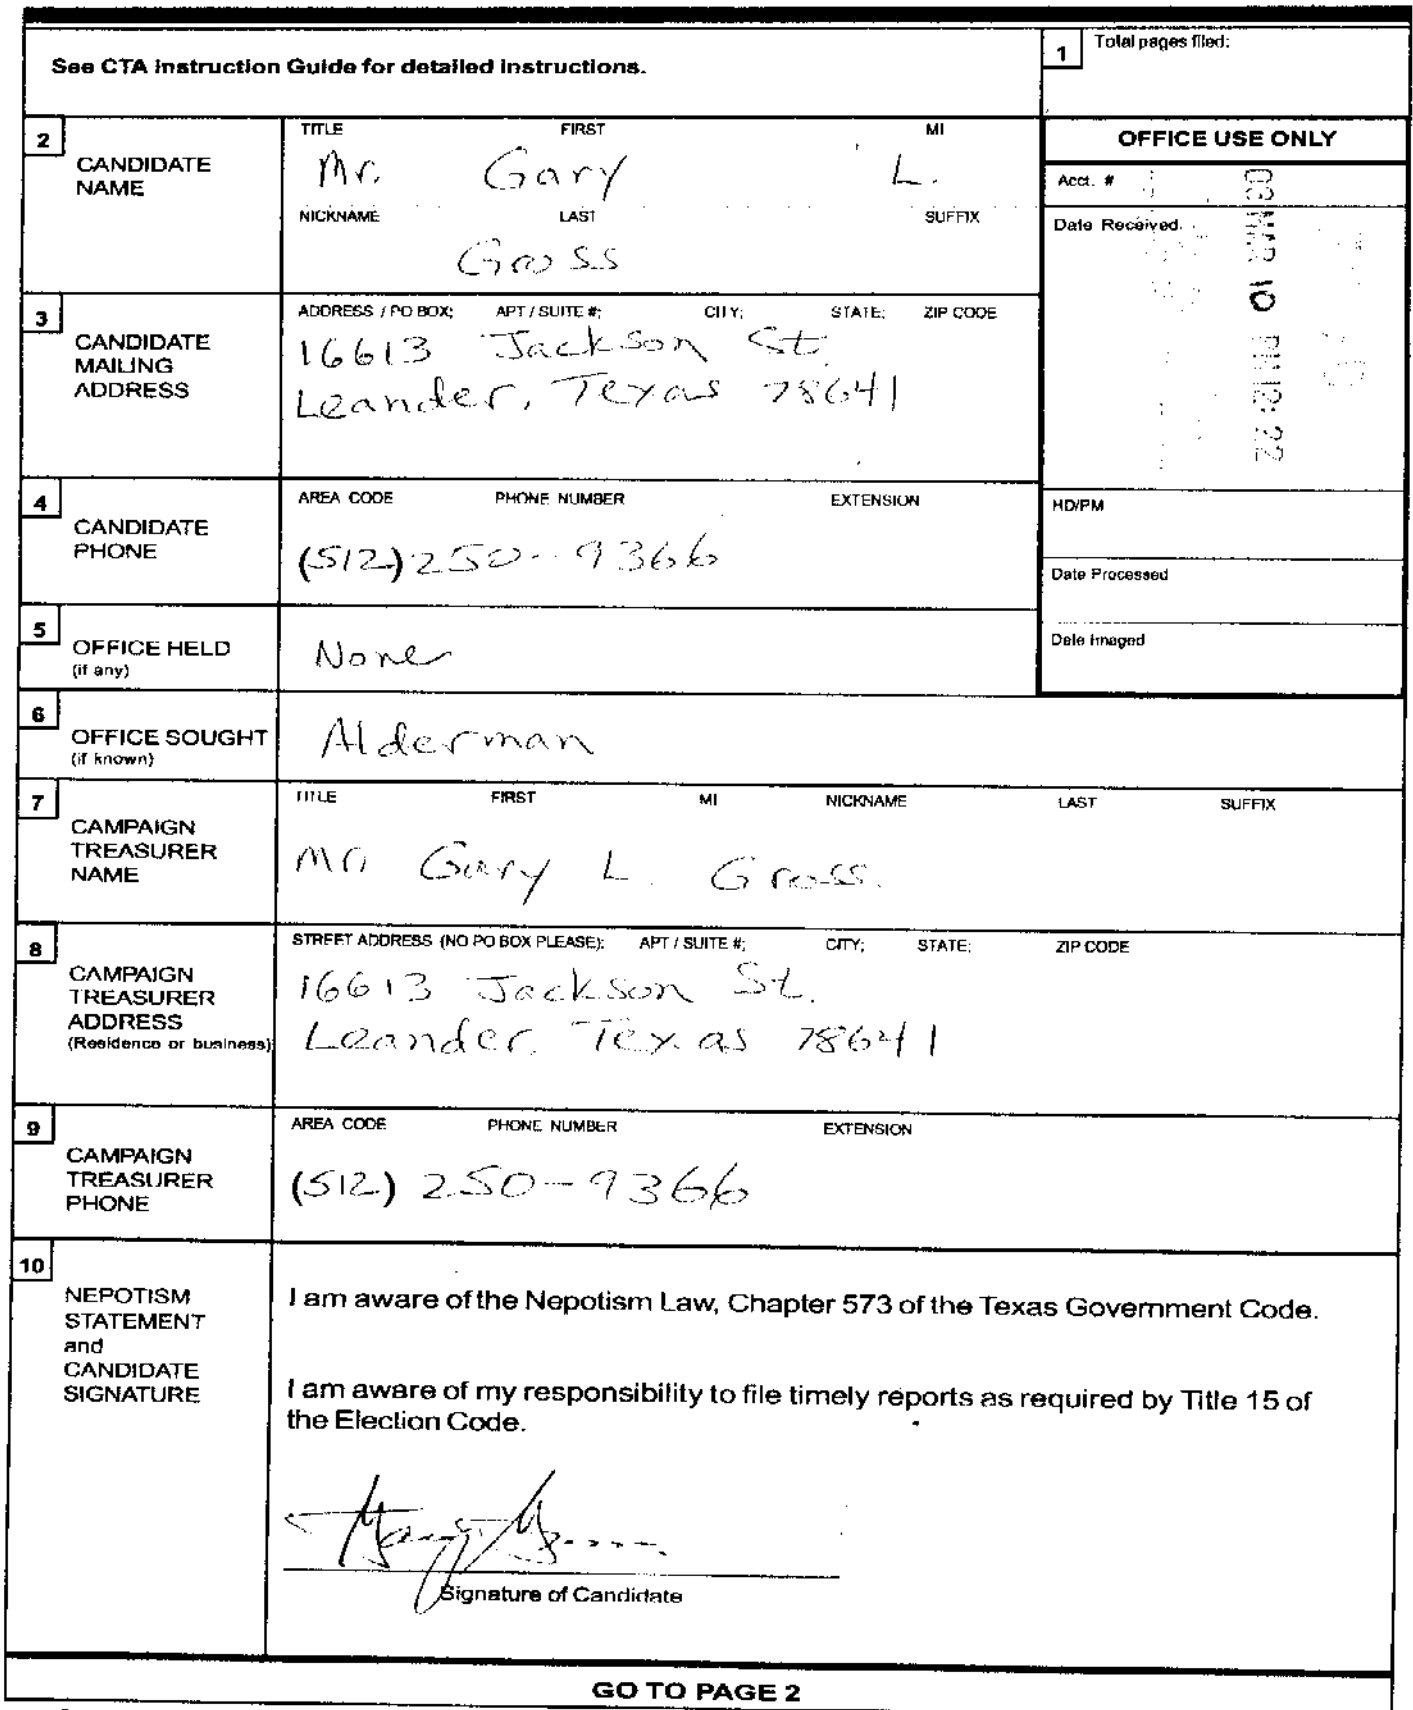 See CTA Instruction Guide for detailed instructions.
1 Total pages filed:
2 CANDIDATE NAME
TITLE FIRST MI
Mr. Gary L.
NICKNAME LAST SUFFIX
Gross
OFFICE USE ONLY
Acct. #
Date Received
03 MAR 10 PM 12:22
3 CANDIDATE MAILING ADDRESS
ADDRESS / PO BOX; APT / SUITE #; CITY; STATE; ZIP CODE
16613 Jackson St.
Leander, Texas 78641
4 CANDIDATE PHONE
AREA CODE PHONE NUMBER EXTENSION
(512) 250-9366
HD/PM
Date Processed
Date Imaged
5 OFFICE HELD (if any)
None
6 OFFICE SOUGHT (if known)
Alderman
7 CAMPAIGN TREASURER NAME
TITLE FIRST MI NICKNAME LAST SUFFIX
Mr. Gary L. Gross.
8 CAMPAIGN TREASURER ADDRESS (Residence or business)
STREET ADDRESS (NO PO BOX PLEASE); APT / SUITE #; CITY; STATE; ZIP CODE
16613 Jackson St.
Leander, Texas 78641
9 CAMPAIGN TREASURER PHONE
AREA CODE PHONE NUMBER EXTENSION
(512) 250-9366
10 NEPOTISM STATEMENT and CANDIDATE SIGNATURE
I am aware of the Nepotism Law, Chapter 573 of the Texas Government Code.
I am aware of my responsibility to file timely reports as required by Title 15 of
the Election Code.
Signature of Candidate
GO TO PAGE 2